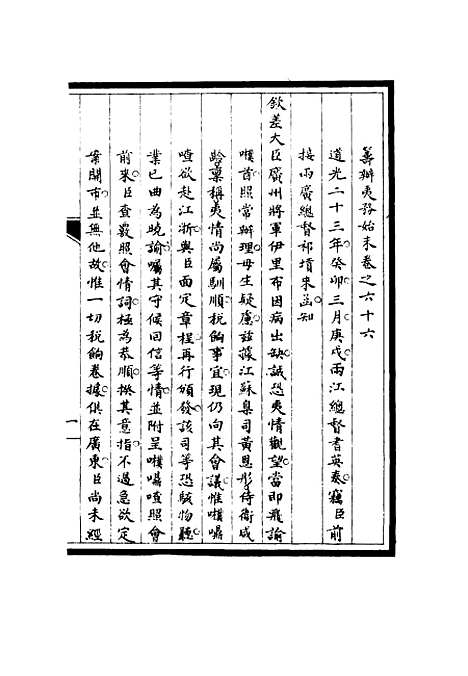 籌辦夷務始末卷之六十六
道光二十三年癸卯三月庚戌兩江總督耆英奏竊臣前
接兩廣總督祁𡎴來函知
欽差大臣廣州將軍伊里布因病出缺誠恐夷情觀望當即飛諭
噗酋照常辦理毋生疑慮茲據江蘇臬司黃恩彤侍衛咸
齡稟稱夷情尚屬馴順稅餉事宜現仍向其會議惟噗囑
喳欲赴江浙與臣面定章程再行頒發該司等恐駭物聽
業已曲為曉諭囑其守候回信等情並附呈噗囑喳照會
前來臣查覈照會情詞極為恭順揆其意指不過急欲定
案開市並無他故惟一切稅餉卷據俱在廣東臣尚未經
一